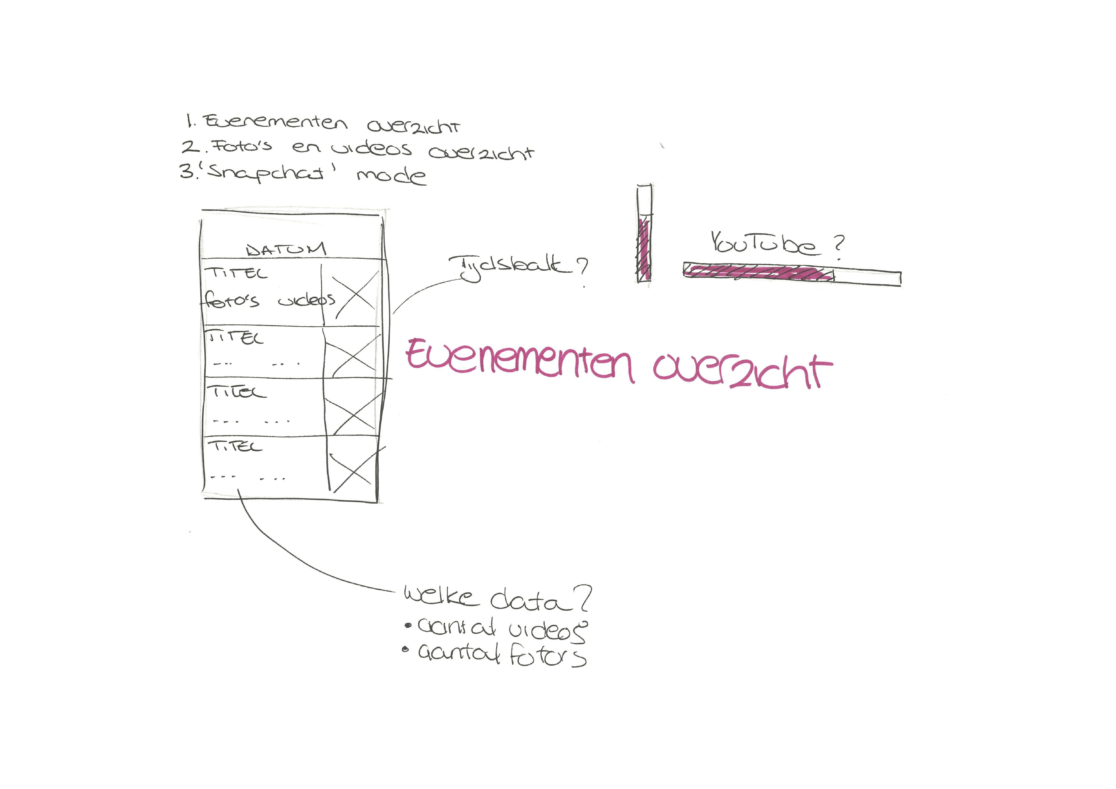 1. Evenementen overzicht
2. Foto's en videos overzicht
3. 'Snapchat' mode
DATUM
TITEL
foto's videos
TITEL
... ...
TITEL
... ...
TITEL
... ...
Tijdsbalk?
YouTube?
Evenementen overzicht
welke data?
• aantal videos
• aantal foto's